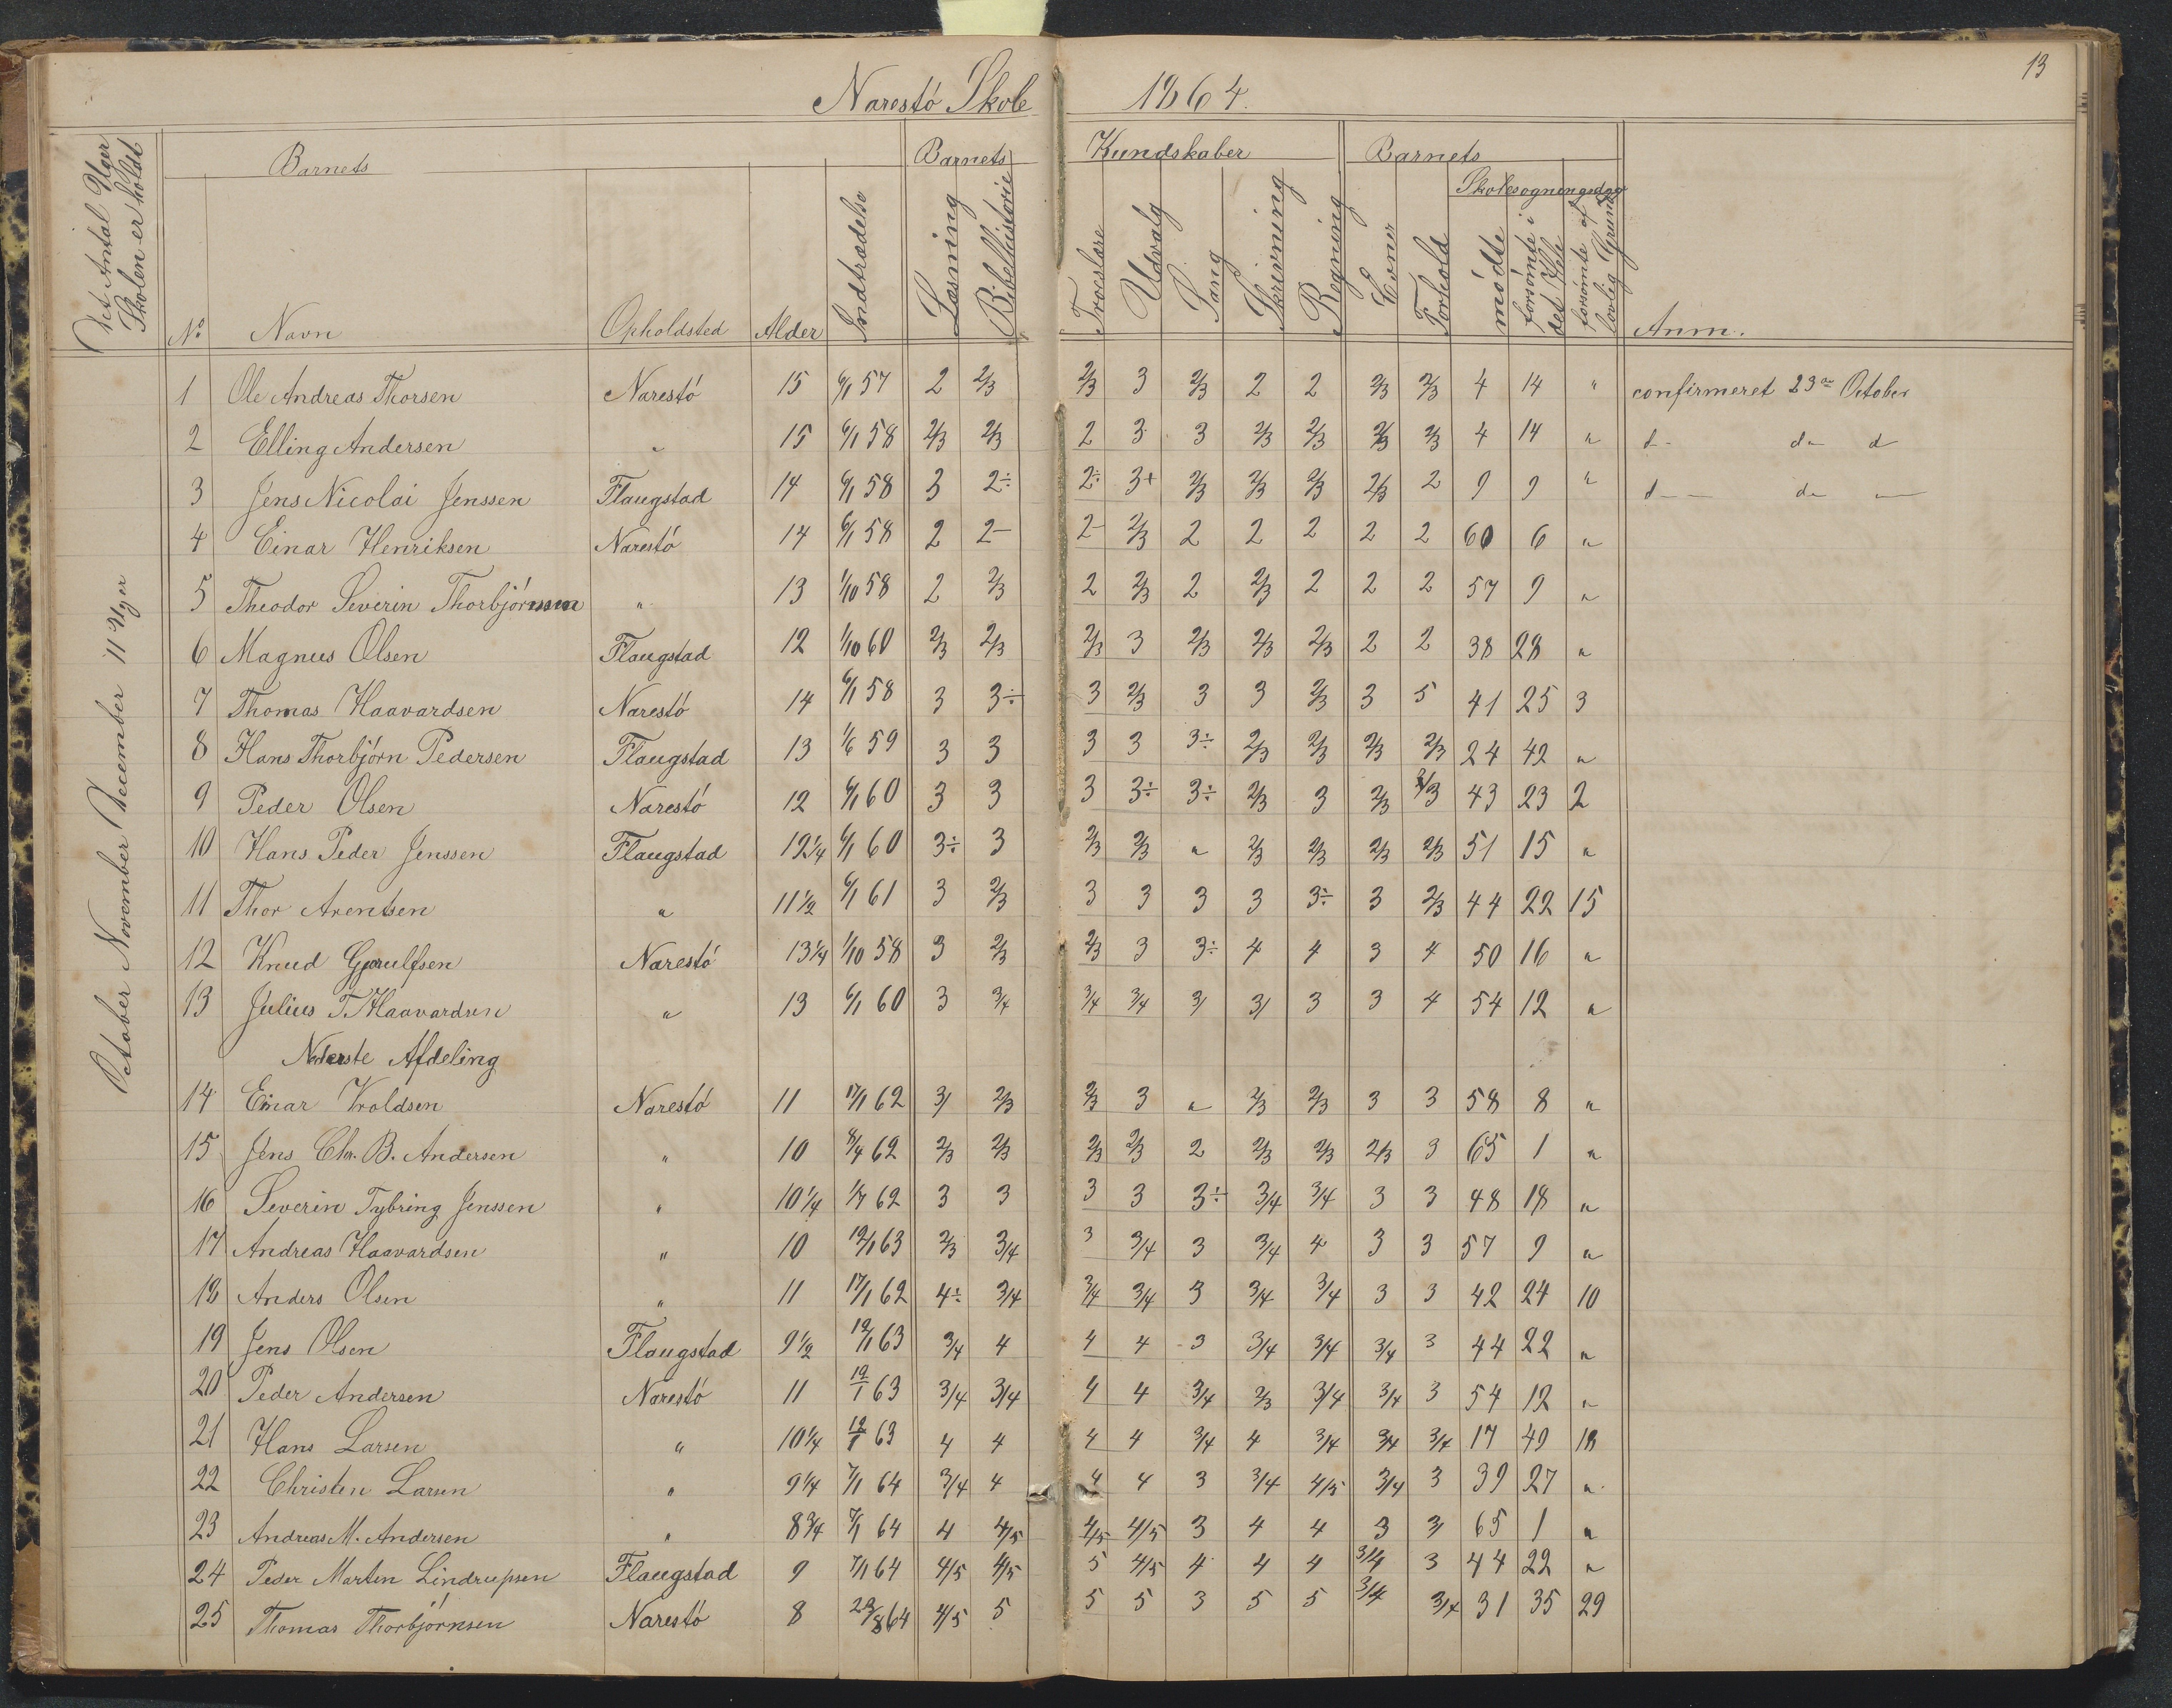 13
Narestö Skole 1864.
Det Antal Uger
Skolen er holdt
Barnets Barnets Kundskaber Barnets
Skolesøgningsdage
No Navn Opholdsted Alder Indtrædelse Læsning Bibelhistorie Troeslære Udvalg Sang Skrivning Regning Evner Forhold mödte forsömte i det Hele forsömte af lovlig Grund Anm.
October November December 11 Uger
1 Ole Andreas Thorsen Narestö 15 6/1 57 2 2/3 2/3 3 2/3 2 2 2/3 2/3 4 14 " confirmeret 23de October
2 Elling Andersen " 15 6/1 58 2/3 2/3 2 3 3 2/3 2/3 2/3 2/3 4 14 " d- do d
3 Jens Nicolai Jenssen Flaugstad 14 6/1 58 3 2÷ 2÷ 3+ 2/3 2/3 2/3 2/3 2 9 9 " d- do —
4 Einar Henriksen Narestö 14 6/1 58 2 2- 2- 2/3 2 2 2 2 2 60 6 "
5 Theodor Severin Thorbjörnsen " 13 1/10 58 2 2/3 2 2/3 2 2/3 2 2 2 57 9 "
6 Magnus Olsen Flaugstad 12 1/10 60 2/3 2/3 2/3 3 2/3 2/3 2/3 2 2 38 28 "
7 Thomas Haavardsen Narestö 14 6/1 58 3 3÷ 3 2/3 3 3 2/3 3 5 41 25 3
8 Hans Thorbjörn Pedersen Flaugstad 13 1/6 59 3 3 3 3 3÷ 2/3 2/3 2/3 2/3 24 42 "
9 Peder Olsen Narestö 12 6/1 60 3 3 3 3÷ 3÷ 2/3 3 2/3 2/3 43 23 2
10 Hans Peder Jenssen Flaugstad 12 1/4 6/1 60 3÷ 3 2/3 2/3 " 2/3 2/3 2/3 2/3 51 15 "
11 Thor Arentsen " 11 1/2 6/1 61 3 2/3 3 3 3 3 3÷ 3 2/3 44 22 15
12 Knud Gjeruldsen Narestö 13 1/4 1/10 58 3 2/3 2/3 3 3÷ 4 4 3 4 50 16 "
13 Julius T. Haavardsen " 13 6/1 60 3 3/4 3/4 3/4 3 3 3 3 4 54 12 "
Nederste Afdeling
14 Einar Wroldsen Narestö 11 17/1 62 3 2/3 2/3 3 " 2/3 2/3 3 3 58 8 "
15 Jens Chr. B. Andersen " 10 8/4 62 2/3 2/3 2/3 2/3 2 2/3 2/3 2/3 3 65 1 "
16 Severin Tybring Jenssen " 10 1/4 1/7 62 3 3 3 3 3÷ 3/4 3/4 3 3 48 18 "
17 Andreas Haavardsen " 10 12/1 63 2/3 3/4 3 3/4 3 3/4 4 3 3 57 9 "
18 Anders Olsen " 11 17/1 62 4÷ 3/4 3/4 3/4 3 3/4 3/4 3 3 42 24 10
19 Jens Olsen Flaugstad 9 1/2 12/1 63 3/4 4 4 4 3 3/4 3/4 3/4 3 44 22 "
20 Peder Andersen Narestö 11 12/1 63 3/4 3/4 4 4 3/4 2/3 3/4 3/4 3 54 12 "
21 Hans Larsen " 10 1/4 12/1 63 4 4 4 4 3/4 4 3/4 3/4 3/4 17 49 18
22 Christen Larsen " 9 1/4 7/1 64 3/4 4 4 4 3 3/4 4/5 3/4 3 39 27 "
23 Andreas M. Andersen " 8 3/4 7/1 64 4 4/5 4/5 4/5 3 4 4 3 3 65 1 "
24 Peder Marten Lindrupsen Flaugstad 9 7/1 64 4/5 4/5 5 4/5 4 4 4 3/4 3 44 22 "
25 Thomas Thorbjörnsen Narestö 8 23/8 64 4/5 5 5 5 3 5 5 3/4 3/4 31 35 29